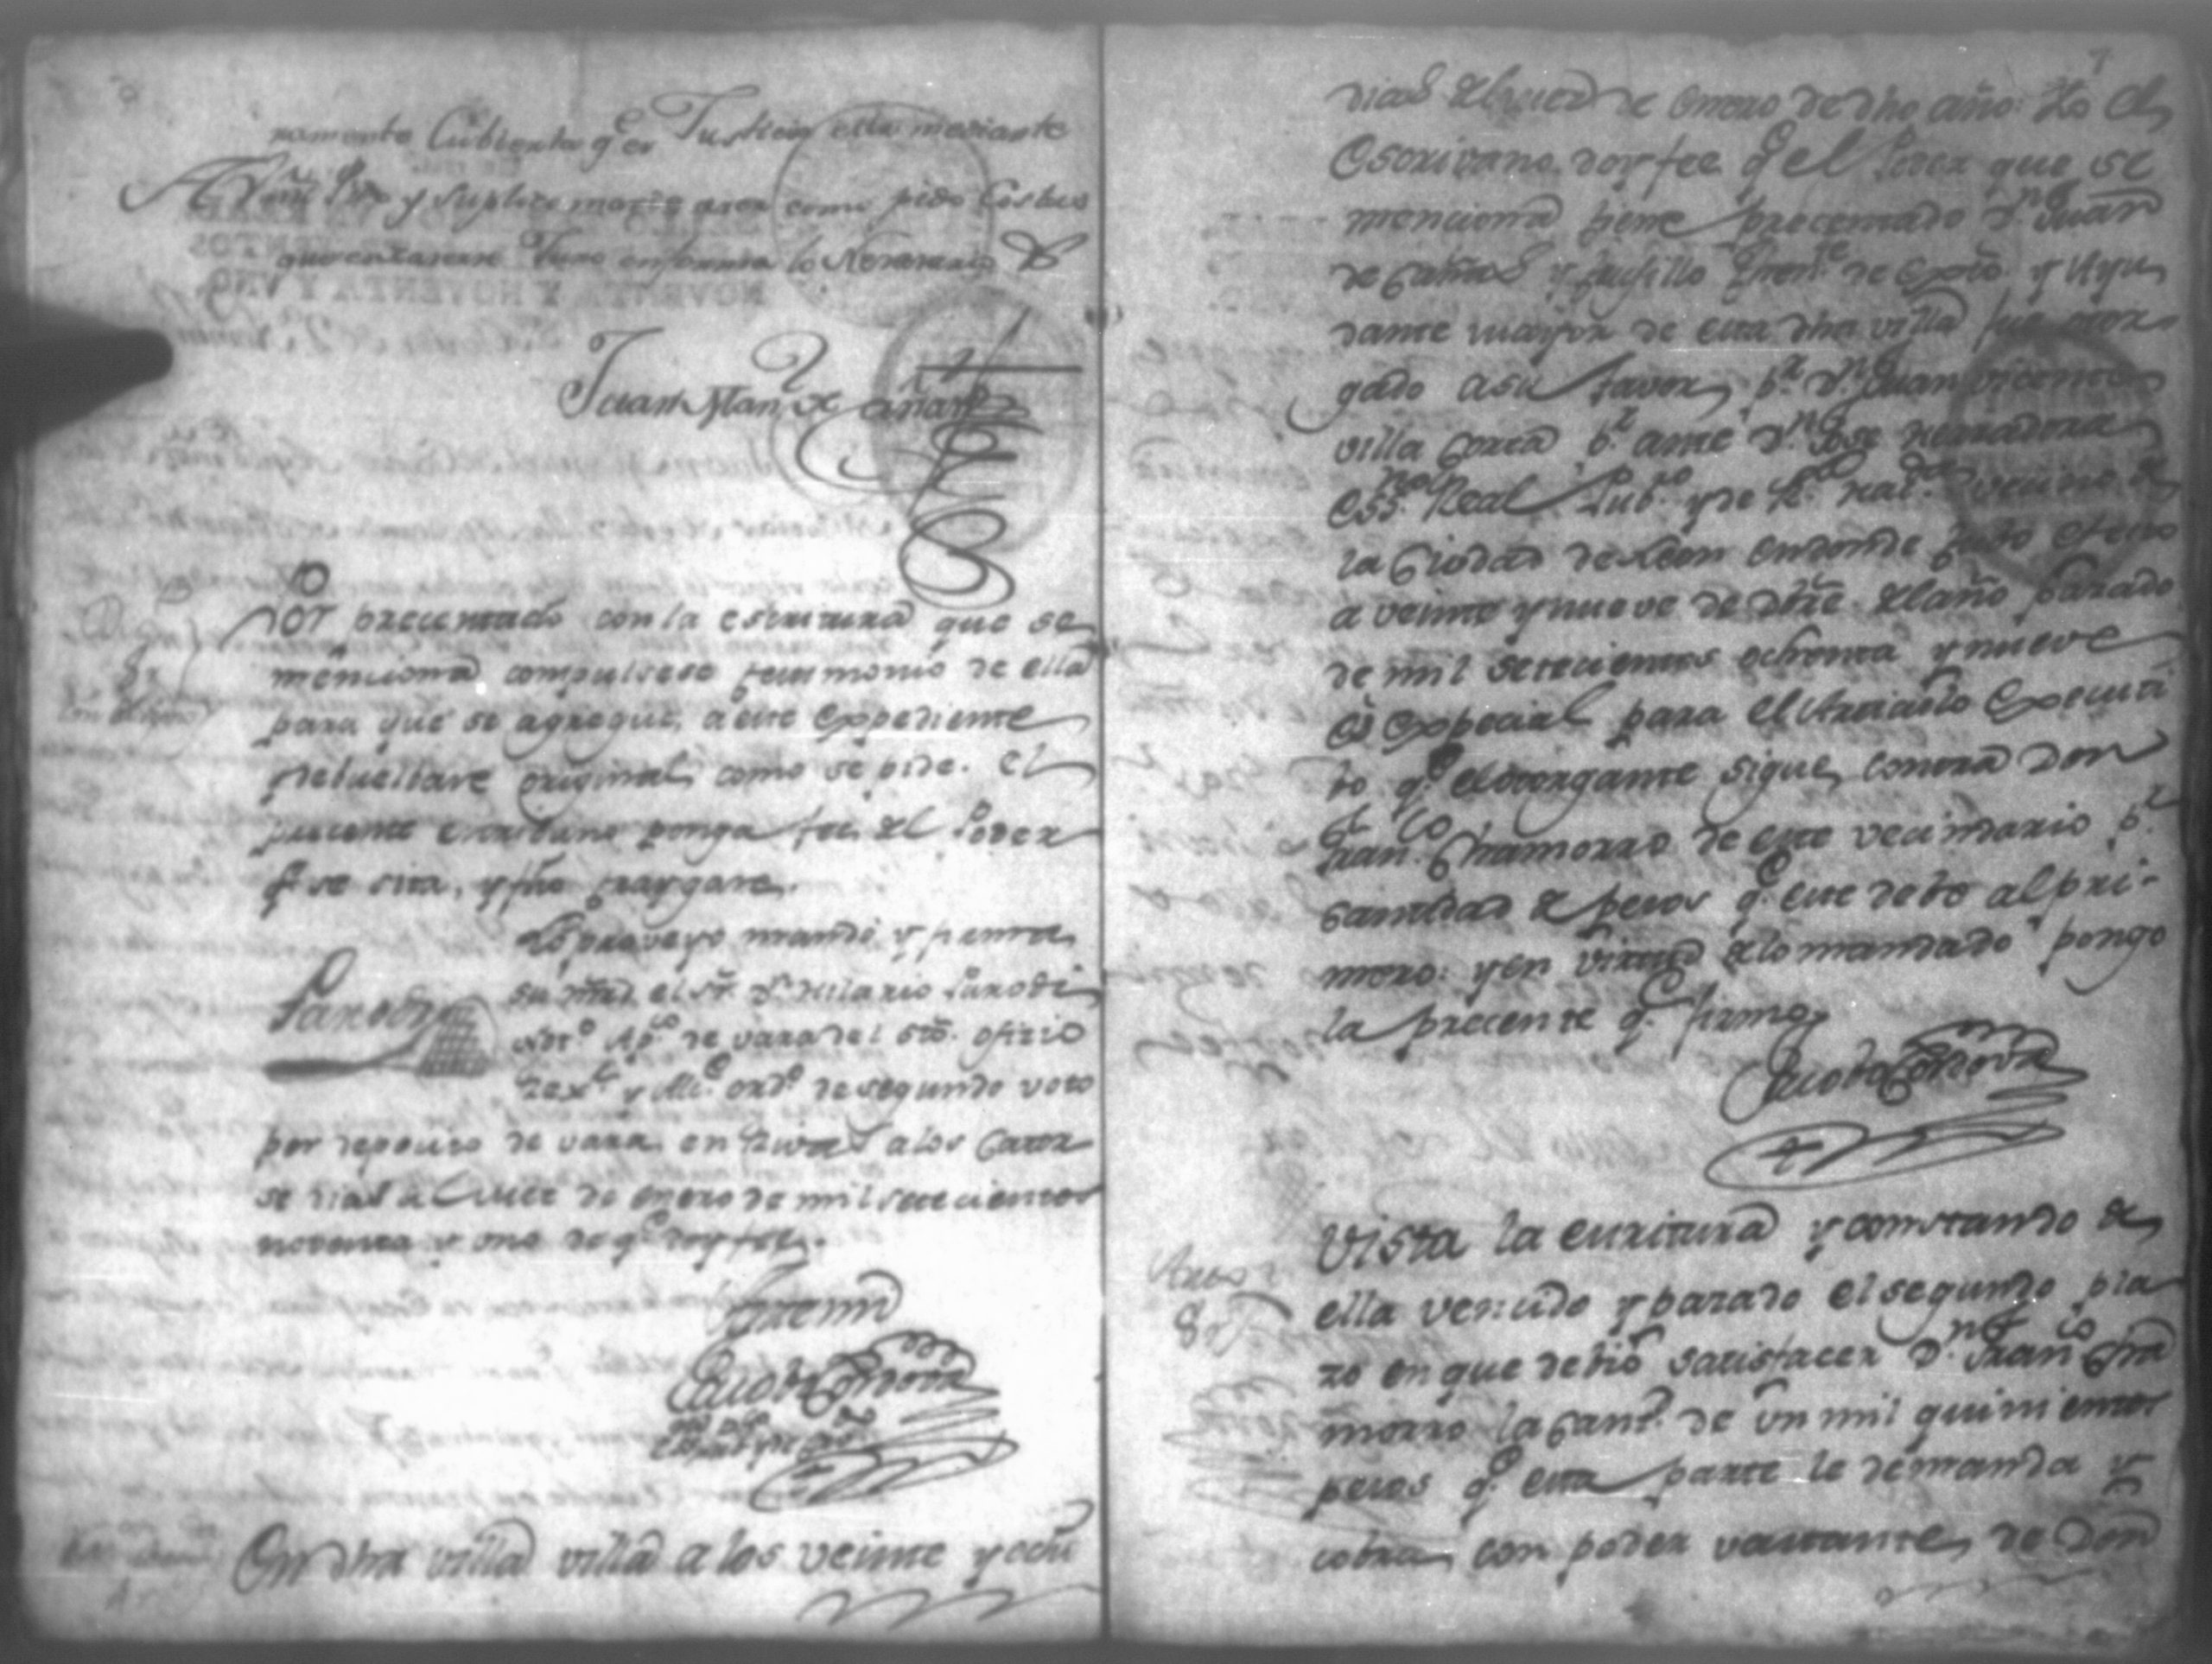 ramente Cubierta q.e es Justicia ella mediante
A Vm. Pido y Suplico mande aser como pido Costas
Juro en forma lo Nesesario &
Juan Man.l de Cañas
Por precentado con la escritura que se
menciona compulsese testimonio de ella
para que se agregue, a este expediente
debuelbase original, como se pide. El
precente escribano ponga fee del Poder
q.e se sita, y fho traygase.
Lo proveyo mando y firma
su mrd. el Sr. D.n Hilario Parodi
Parodi
Not.o Ap.co de vara del Sto. ofizio
Rex.or y Alc.e ord.o de segundo voto
por deposito de vara en Rivas a los Cator
se dias del mes de enero de mil setecientos
noventa y uno de q.e doy fee.
Ante mi
Jacobo Cordova
En dha villa villa a los veinte y ocho
7
dias del mes de Enero de dho año: Yo el
Escrivano doy fee q.e el Poder que se
menciona tiene precentado D.n Juan
de Cañas y Trusillo Then.te de Exto. y Ayu
dante mayor de esta dha villa fue otor
gado a su favor, p.r D.n Juan Vicente
villa Corta p.r ante D.n
Ess.no Real Pub.co y de vecino de
la Ciudad de Leon en donde
a veinte y nueve de Dbre. del año pasado
de mil setecientos ochenta y nueve
es expecial para el Articulo Executi
bo q.e el otorgante sigue, contra Don
Fran.co Chamorro de este vecindario p.r
cantidad de pesos q.e este debe al pri-
mero: y en virtud de lo mandado pongo
la precente q.e firmo.
Jacobo Cordova
Autos
Vista la escritura y constando de
ella vencido y pasado el segundo pla
zo en que debio satisfacer D.n Fran.co Cha
morro la cant.d de un mil quinientos
pesos q.e esta parte le demanda y
cobra, con poder vastante, de Don